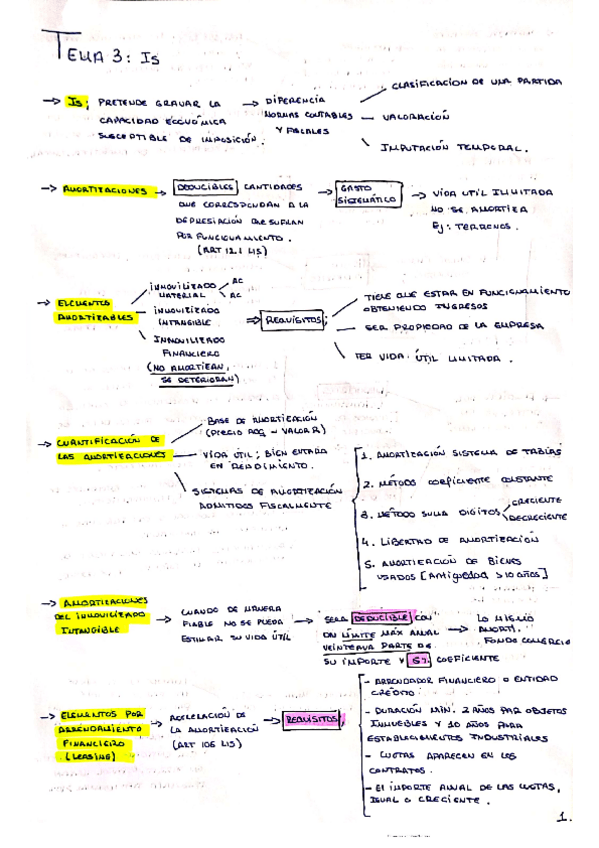 TEMA 3: IS
→ IS; PRETENDE GRAVAR LA
CAPACIDAD ECONÓMICA
SUSCEPTIBLE DE IMPOSICIÓN.
→ DIFERENCIA
NORMAS CONTABLES
Y FISCALES
CLASIFICACION DE UNA PARTIDA
VALORACIÓN
IMPUTACIÓN TEMPORAL.
→ AMORTIZACIONES → DEDUCIBLES CANTIDADES
QUE CORRESPONDAN A LA
DEPRESIACIÓN QUE SUFRAN
POR FUNCIONAMIENTO.
(ART 12.1 LIS)
→ GASTO
SISTEMÁTICO
→ VIDA UTIL ILIMITADA
NO SE AMORTIZA
Ej: TERRENOS.
→ ELEMENTOS
AMORTIZABLES
INMOVILIZADO
MATERIAL
AC
AC
INMOVILIZADO
INTANGIBLE
INMOVILIZADO
FINANCIERO
(NO AMORTIZAN,
SE DETERIORAN)
⇒ REQUISITOS;
TIENE QUE ESTAR EN FUNCIONAMIENTO
OBTENIENDO INGRESOS
SER PROPIEDAD DE LA EMPRESA
TER VIDA ÚTIL LIMITADA.
→ CUANTIFICACIÓN DE
LAS AMORTIZACIONES
BASE DE AMORTIZACIÓN
(PRECIO ADQ - VALOR R)
VIDA ÚTIL; BIEN ENTRADA
EN RENDIMIENTO.
SISTEMAS DE AMORTIZACIÓN
ADMITIDOS FISCALMENTE
1. AMORTIZACIÓN SISTEMA DE TABLAS
2. MÉTODO COEFICIENTE CONSTANTE
3. MÉTODO SUMA DIGITOS
CRECIENTE
DECRECIENTE
4. LIBERTAD DE AMORTIZACIÓN
5. AMORTIZACIÓN DE BIENES
USADOS [Antigüedad > 10 AÑOS]
→ AMORTIZACIONES
DEL INMOVILIZADO
INTANGIBLE
→ CUANDO DE MANERA
FIABLE NO SE PUEDA
ESTIMAR SU VIDA ÚTIL
→ SERA DEDUCIBLE CON
UN LÍMITE MÁX ANUAL
VEINTEAVA PARTE DE
SU IMPORTE Y 5% COEFICIENTE
→ LO MISMO
AMORTI.
FONDO COMERCIO
→ ELEMENTOS POR
ARRENDAMIENTO
FINANCIERO
(LEASING)
→ ACELERACIÓN DE
LA AMORTIZACIÓN
(ART 106 LIS)
→ REQUISITOS;
- ARRENDADOR FINANCIERO O ENTIDAD
CRÉDITO.
- DURACIÓN MÍN. 2 AÑOS PAR OBJETOS
INMUEBLES Y 10 AÑOS PARA
ESTABLECIMIENTOS INDUSTRIALES
- CUOTAS APARECEN EN LOS
CONTRATOS.
- El IMPORTE ANUAL DE LAS CUOTAS,
IGUAL O CRECIENTE.
1.